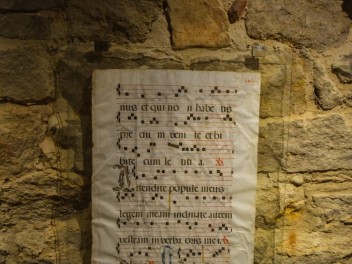 nus et qui no n habe tis
pre ciu m veni te et bi
bite cum le titi a.
Attendite popule meus
legem meam inclinate aurem
vestram in verba oris me i.